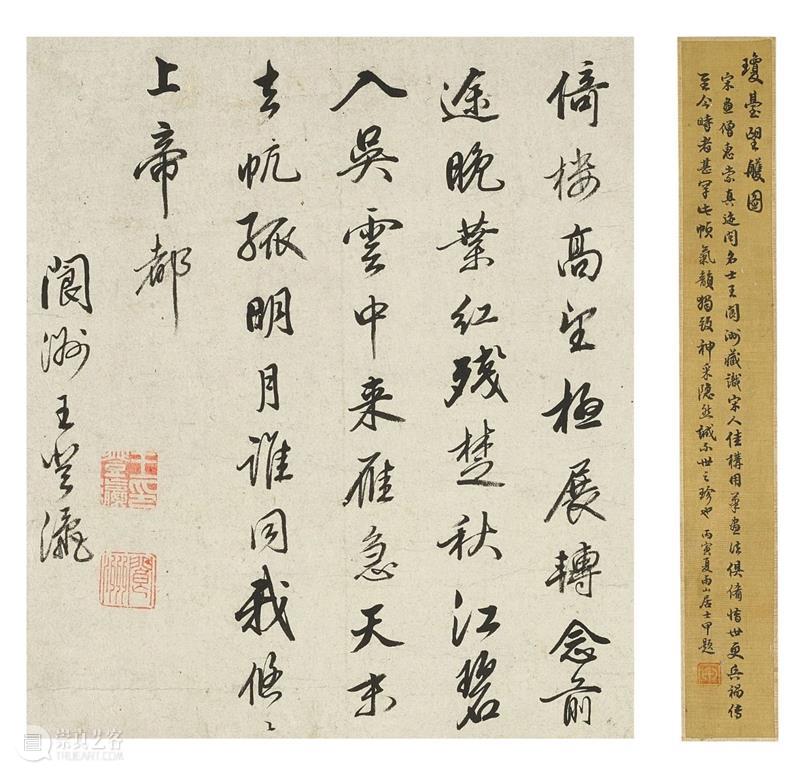 倚楼高望極展轉念前
途晚葉紅残楚秋江碧
入吳雲中来雁急天末
去帆孤明月誰同我悠〻
上帝都
閬洲王登瀛
瓊臺望圖
宋畫僧惠崇真迹閩名士王閬洲藏識宋人佳構用筆畫法俱備惜世更兵禍傳
至今時者甚罕此幀氣韻獨致神采隱然誠不世之珍也 丙寅夏雨山居士甲題
崇真艺客
TRUEART.COM